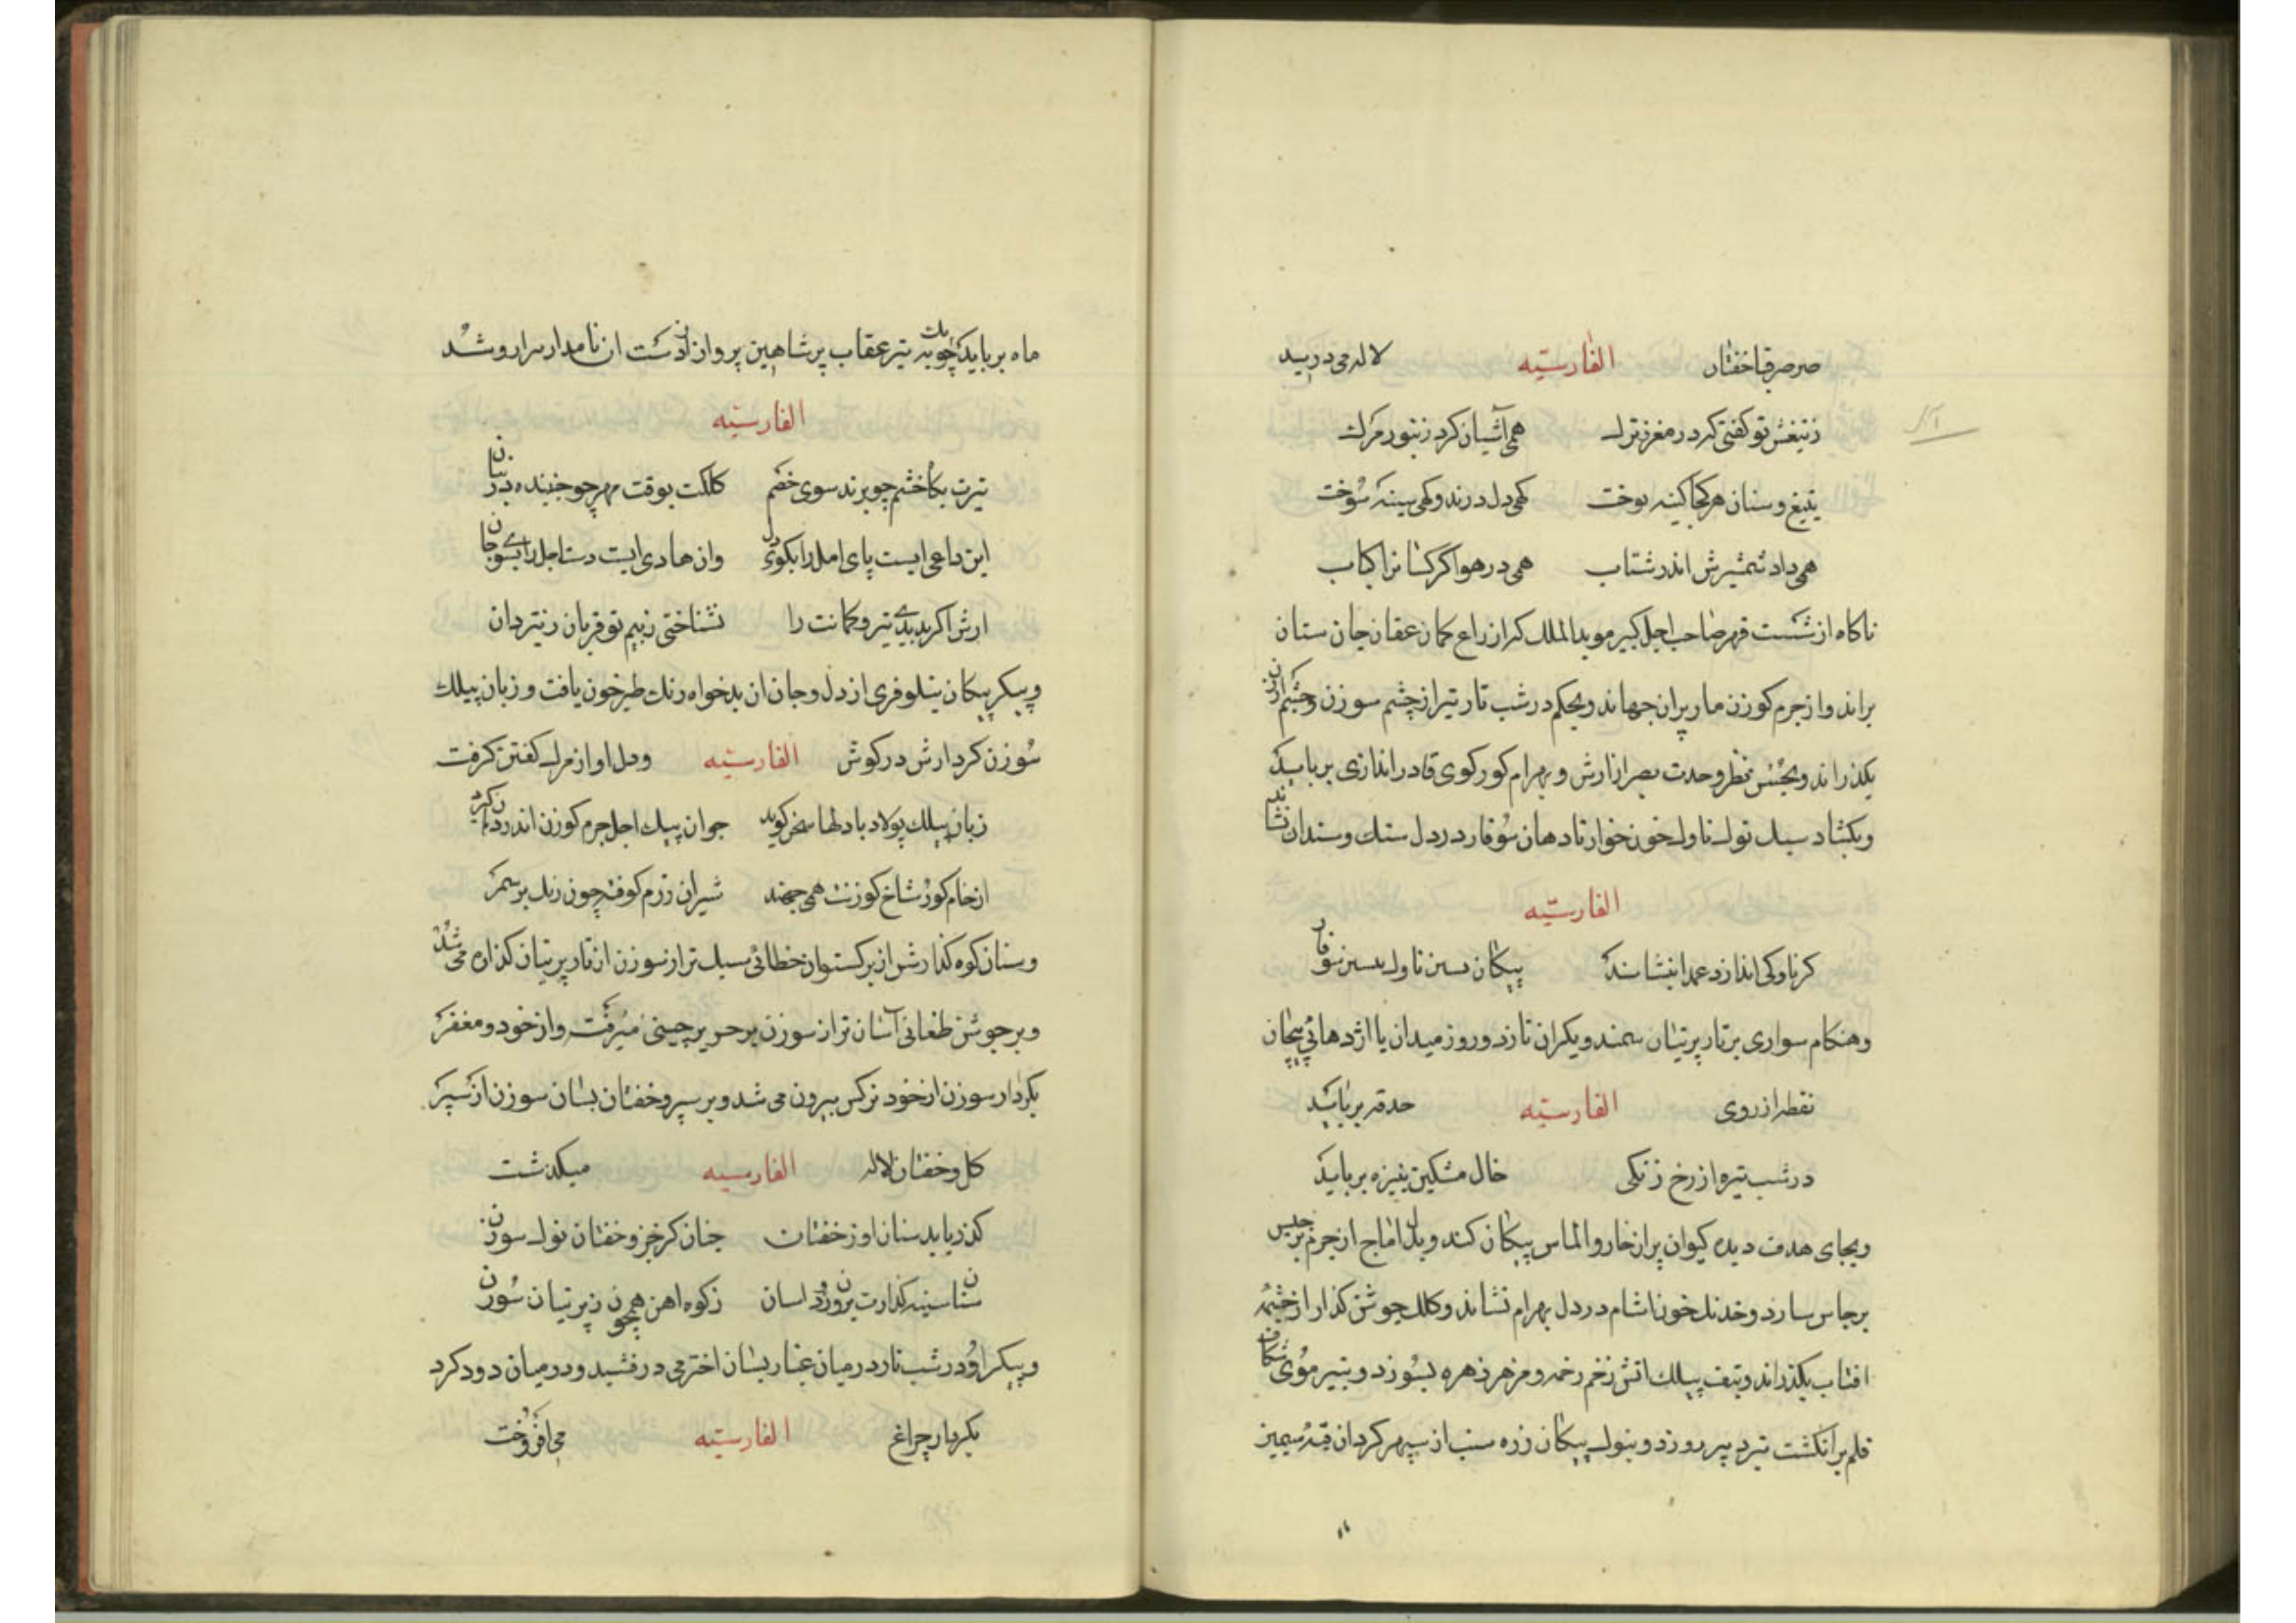 صرصر قبا خفتان الفارسیّه لاله می درید
ز تیغش تو کفتی که در مغز ترک همی آشیان کرد زنبور مرک
بتیغ و سنان هر کجا کینه توخت کهی دل درند و کهی سینه سوخت
همی داد شمشیرش اندر شتاب همی در هوا کرکسانرا کباب
ناکاه از شست قهر صاحب اجل کبیر موید الملک که از زاغ کمان عقاب جان ستان
براند و از جرم کوزن مار پران جهاند و بحکم در شب تار تیر از چشم سوزن و چشم
بکذراند و بحسن نظر و حدت بصر از ارش و بهرام کور کوی قادر اندازی برباید
و بکشاد سبک نوک ناوک خون خوار تا دهان سوفار در دل سنک و سندان نشاند
الفارسیّه
کر ناوکی اندازد عمدا بنشاند پیکان پسین ناوک پیشین سوفار
و هنکام سواری بر تار پرنیان سمند و یکران تازد و روز میدان با اژدهائی پیچان
نقطه از روی الفارسیّه حدقه برباید
در شب تیره از رخ زنکی خال مشکین بنیزه برباید
و بجای هدف دیده کیوان پر از خار و الماس پیکان کند و بدل اماج از جرم برجیس
برجاس سازد و خدنک خون اشام در دل بهرام نشاند و کلک جوشن کذار از چشمه
افتاب بکذراند و بتف بیلک اتش زخم زخمه و مزهر زهره بسوزد و بتیر موی شکاف
قلم بر انکشت تیر دبیر دوزد و بنوک پیکان زره سنب از سپهر کردان قبه سیمین
ماه برباید چو یک چوبه تیر عقاب پر شاهین پرواز از دست ان نامدار سرارو شد
الفارسیّه
تیرت بکاه خشم چو پرند سوی خصم کلکت بوقت مهر چو جنبنده در بنان
این داعی ایست پای امل را بکوی دل وان هادی ایست دست اجل را بسوی جان
ارش اکر بدیدی تیر و کمانت را نشناختی ز بیم تو قربان ز تیردان
و پیکر پیکان نیلوفری از دل و جان ان بدخواه رنک طبرخون یافت و زبان بیلک
سوزن کردارش در کوش الفارسیّه و دل او از مرک کفتن کرفت
زبان بیلک پولاد با دلها سخن کوید جوان پیک اجل جرم کوزن اندر دهان کیرد
از خام کور شاخ کوزنت همی جهند شیران رزم کوفته چون رنک بر شمر
و سنان کوه کذارش از برکستوان خطائی سبک تر از سوزن از تار پرنیان کذاره می شد
و بر جوشن طغانی آسان تر از سوزن بر حریر چینی میرفت و از خود و مغفر
بکردار سوزن از خود نرکس بیرون می شد و بر سپر و خفتان بسان سوزن از سپر
کل و خفتان لاله الفارسیه میکذشت
کذر یابد سنان او ز خفتان چنان کز خز و خفتان نوک سوزن
سنان سینه کذارت برون رود اسان ز کوه اهن همچون ز پرنیان سوزن
و پیکر او در شب تار در میان غبار بسان اختر می درفشید و در میان دود کرد
بکردار چراغ الفارسیّه می افروخت